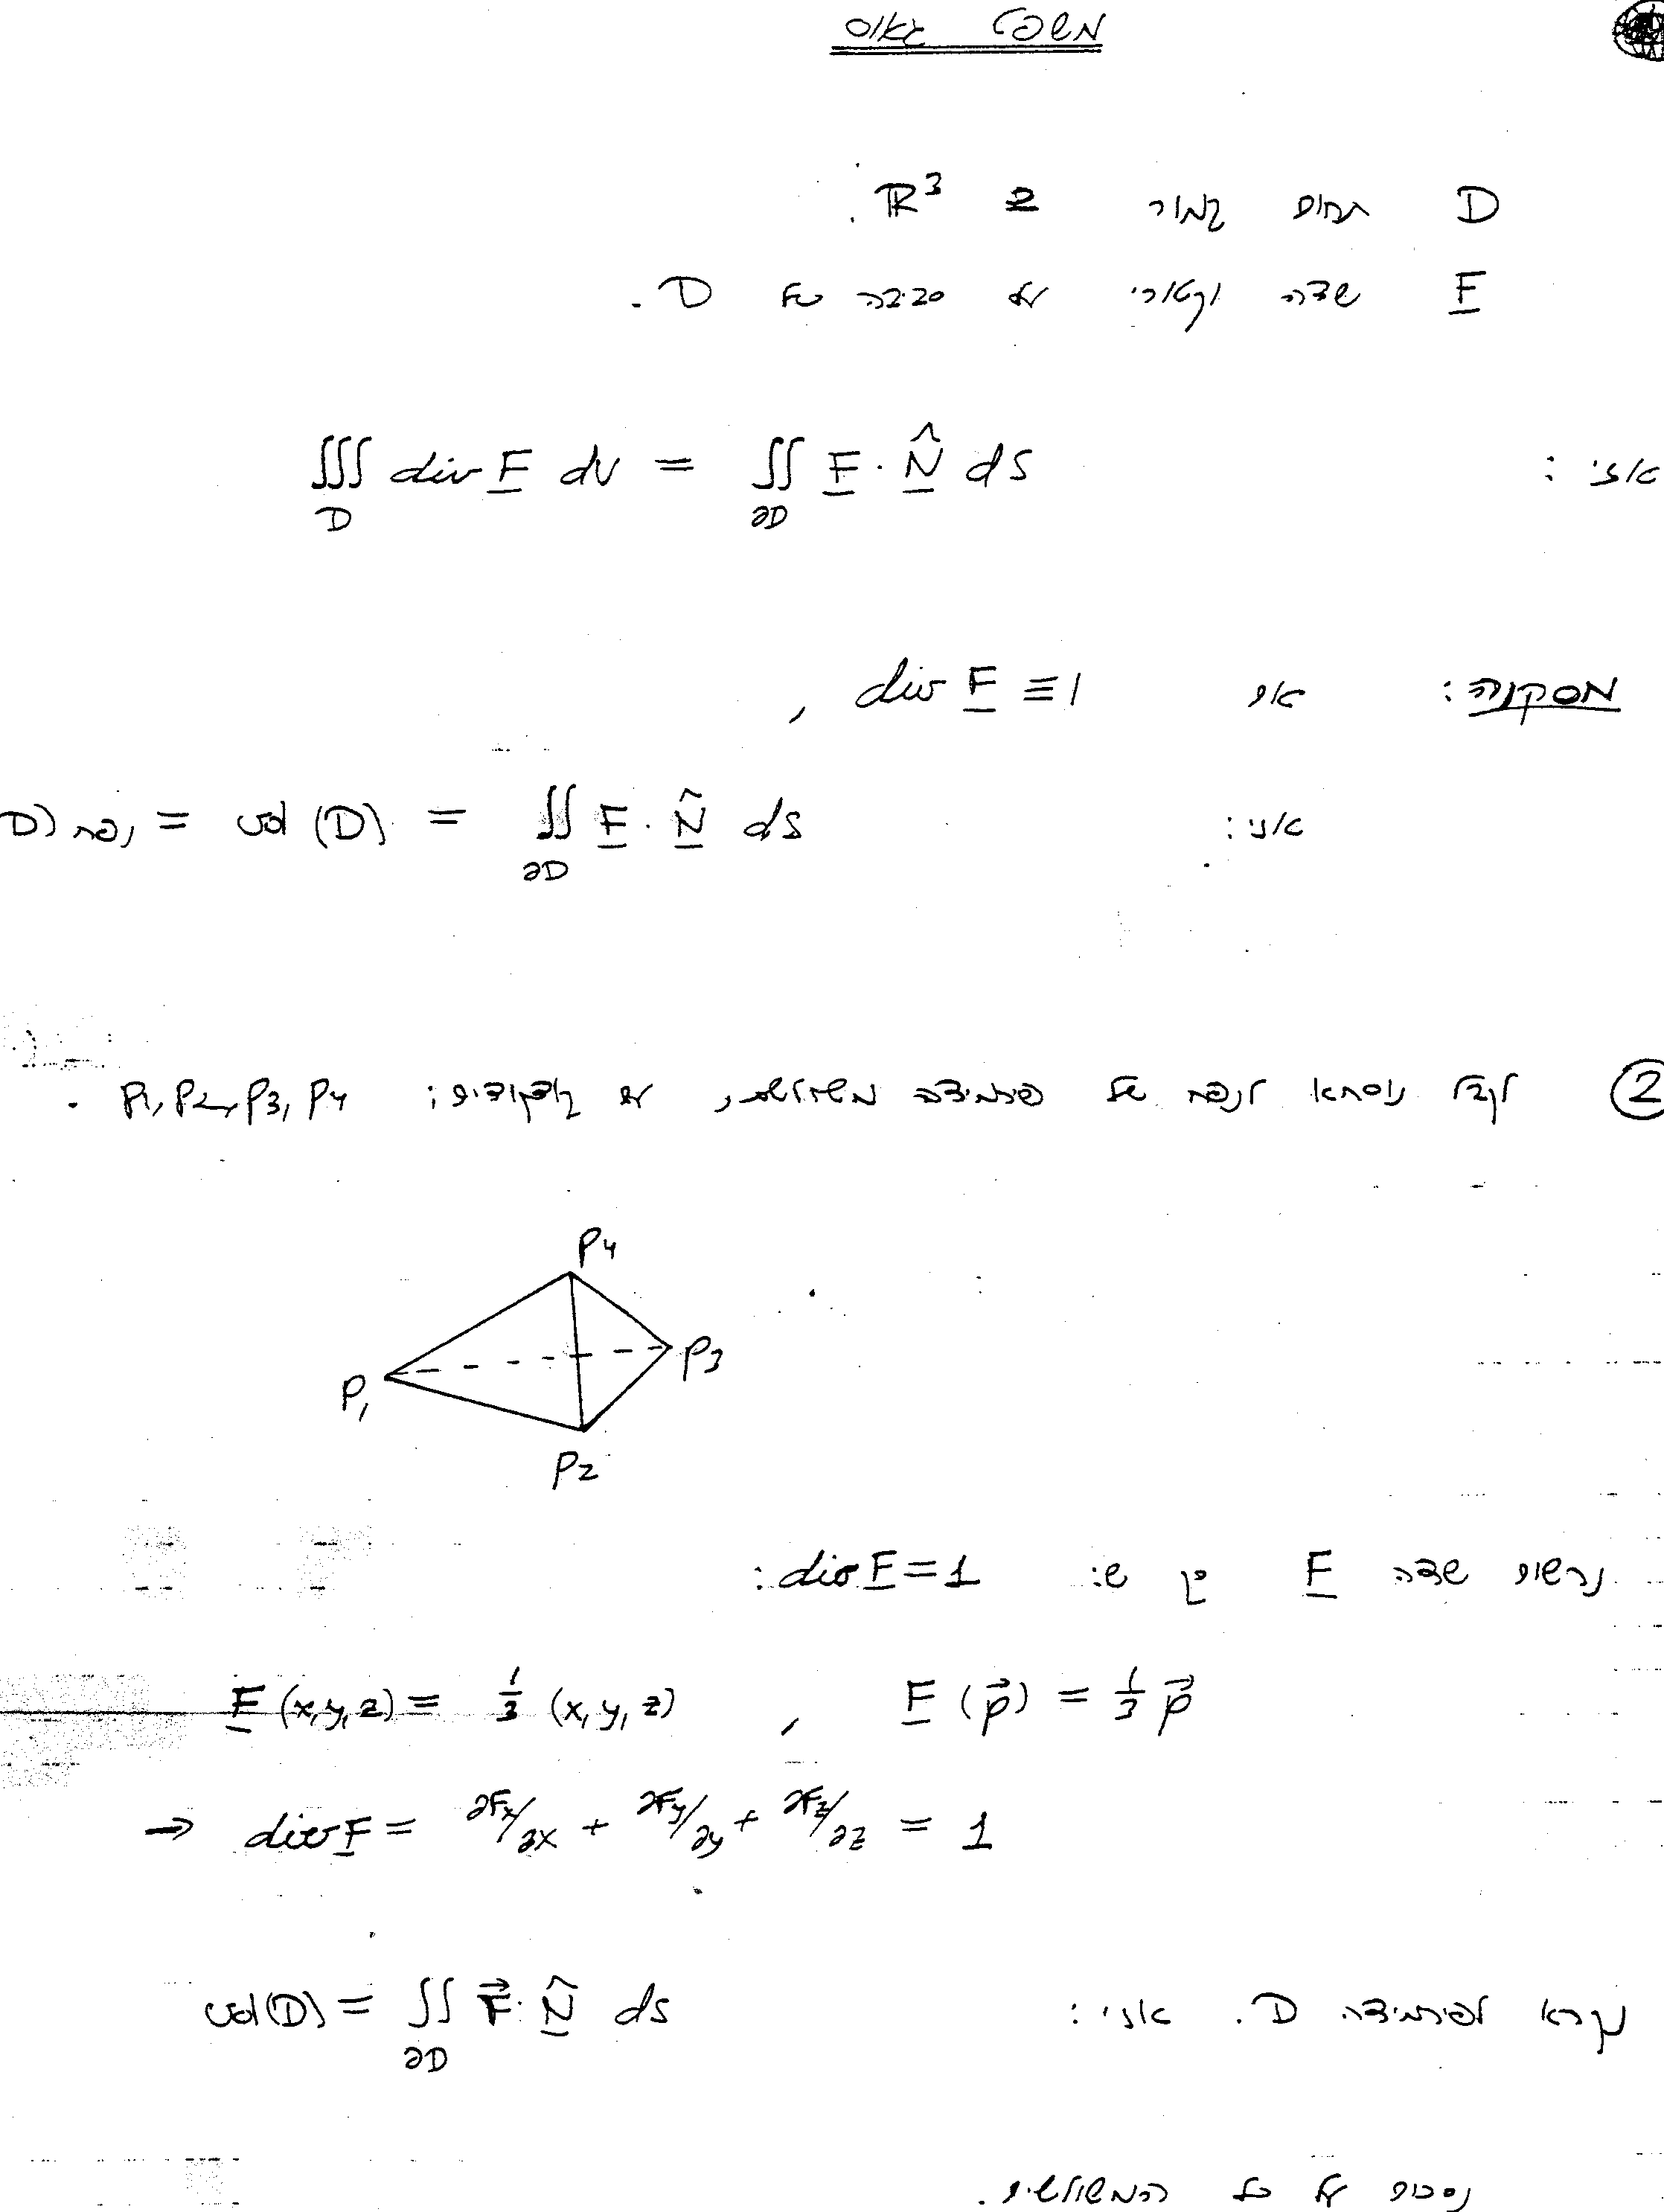 משפט גאוס
D תחום קמור ב ℝ³.
F שדה וקטורי על סביבה של D.
אזי: ∭_D div F dv = ∬_∂D F · N̂ ds
מסקנה: אם div F ≡ 1,
אזי: ∬_∂D F · N̂ ds = vol(D) = נפח (D
② לקבל נוסחא לנפח של פירמידה משולשת, עם קדקודים: P1, P2, P3, P4.
P4
P3
P1
P2
נרשום שדה F כך ש: div F = 1:
F(x,y,z) = 1/3 (x,y,z) , F(p⃗) = 1/3 p⃗
⇒ div F = ∂Fx/∂x + ∂Fy/∂y + ∂Fz/∂z = 1
נקרא לפירמידה D. אזי: vol(D) = ∬_∂D F⃗ · N̂ ds
נסכום על כל המשולשים.